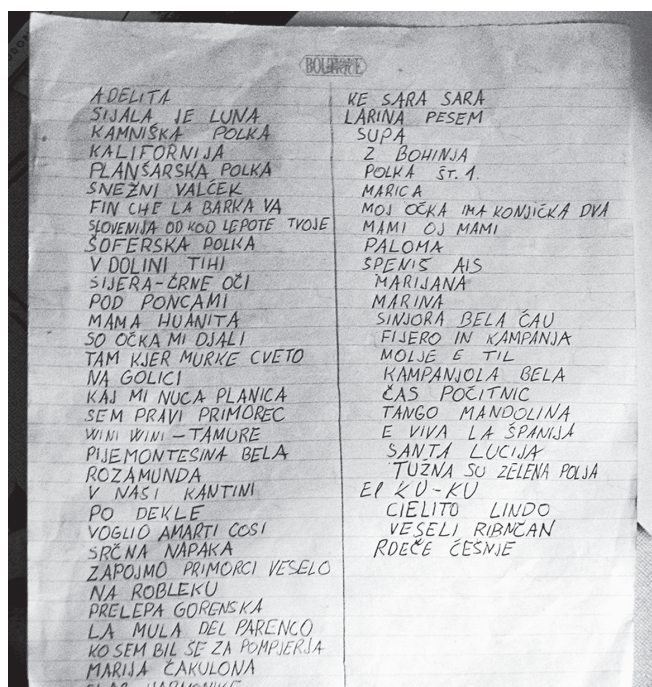 BOUTIQUE
ADELITA
SIJALA JE LUNA
KAMNIŠKA POLKA
KALIFORNIJA
PLANŠARSKA POLKA
SNEŽNI VALČEK
FIN CHE LA BARKA VA
SLOVENIJA OD KOD LEPOTE TVOJE
ŠOFERSKA POLKA
V DOLINI TIHI
SIJERA-ČRNE OČI
POD PONCAMI
MAMA HUANITA
SO OČKA MI DJALI
TAM KJER MURKE CVETO
NA GOLICI
KAJ MI NUCA PLANICA
SEM PRAVI PRIMOREC
WINI WINI - TAMURE
PIJEMONTESINA BELA
ROZAMUNDA
V NAŠI KANTINI
PO DEKLE
VOGLIO AMARTI COSI
SRČNA NAPAKA
ZAPOJMO PRIMORCI VESELO
NA ROBLEKU
PRELEPA GORENSKA
LA MULA DEL PARENCO
KO SEM BIL ŠE ZA POMPJERJA
MARIJA ČAKULONA
HARMONIKE
KE SARA SARA
LARINA PESEM
SUPA
Z BOHINJA
POLKA ŠT. 1.
MARICA
MOJ OČKA IMA KONJIČKA DVA
MAMI OJ MAMI
PALOMA
ŠPENIŠ AIS
MARIJANA
MARINA
SINJORA BELA ČAU
FIJERO IN KAMPANJA
MOLJE E TIL
KAMPANJOLA BELA
ČAS POČITNIC
TANGO MANDOLINA
E VIVA LA ŠPANIJA
SANTA LUCIJA
TUZNA SU ZELENA POLJA
EJ KU-KU
CIELITO LINDO
VESELI RIBNČAN
RDEČE ČEŠNJE